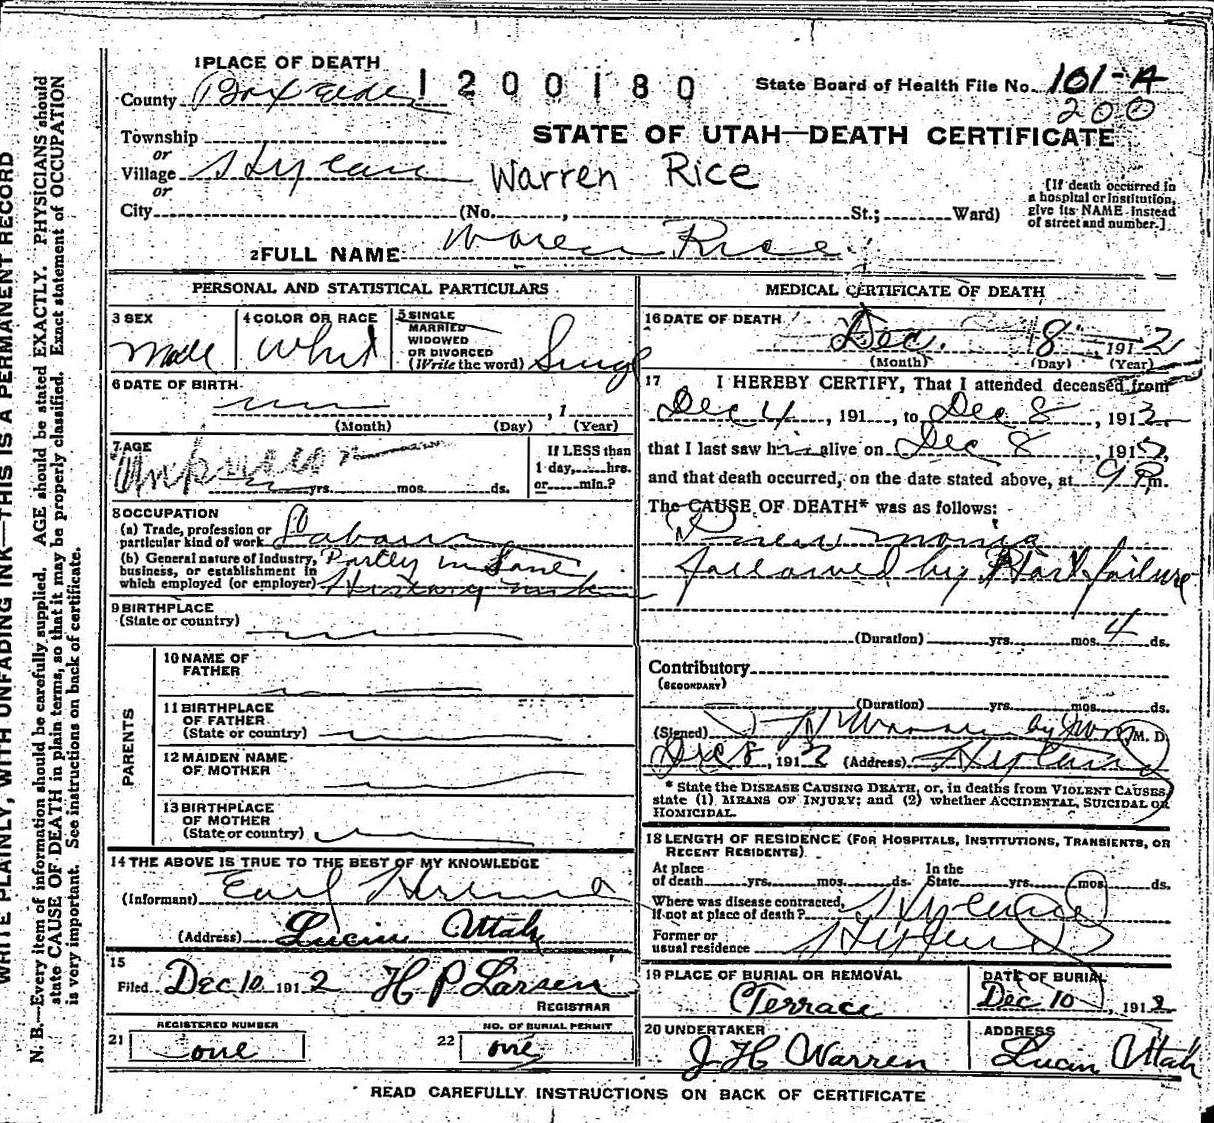 1 PLACE OF DEATH
1200180
State Board of Health File No. 101-A
200
County Box Elder
Township
STATE OF UTAH—DEATH CERTIFICATE
or
Village
Warren Rice
or
City (No. , St.; Ward)
[If death occurred in
a hospital or institution,
give its NAME instead
of street and number.]
2 FULL NAME Waren Rice
PERSONAL AND STATISTICAL PARTICULARS
3 SEX
Male
4 COLOR OR RACE
Whit
5 SINGLE
MARRIED
WIDOWED
OR DIVORCED
(Write the word)
6 DATE OF BIRTH
, 1
(Month) (Day) (Year)
7 AGE
Unknown
yrs. mos. ds.
If LESS than
1 day, hrs.
or min.?
8 OCCUPATION
(a) Trade, profession or
particular kind of work
(b) General nature of industry,
business, or establishment in
which employed (or employer)
Partly in
9 BIRTHPLACE
(State or country)
PARENTS
10 NAME OF
FATHER
11 BIRTHPLACE
OF FATHER
(State or country)
12 MAIDEN NAME
OF MOTHER
13 BIRTHPLACE
OF MOTHER
(State or country)
14 THE ABOVE IS TRUE TO THE BEST OF MY KNOWLEDGE
(Informant) Earl
(Address) Lucin Utah
15
Filed Dec 10 1912 H P Larsen
REGISTRAR
21 REGISTERED NUMBER
one
22 NO. OF BURIAL PERMIT
one
MEDICAL CERTIFICATE OF DEATH
16 DATE OF DEATH
Dec. 8, 1912
(Month) (Day) (Year)
17 I HEREBY CERTIFY, That I attended deceased from
Dec 4, 191 , to Dec 8, 1912
that I last saw him alive on Dec 8, 1912,
and that death occurred, on the date stated above, at 9 P m.
The CAUSE OF DEATH* was as follows:
Pnewmonia
followed by Hart failure
(Duration) yrs. mos. 4 ds.
Contributory
(SECONDARY)
(Duration) yrs. mos. ds.
(Signed) M. D.
Dec 8, 1912 (Address)
* State the DISEASE CAUSING DEATH, or, in deaths from VIOLENT CAUSES,
state (1) MEANS OF INJURY; and (2) whether ACCIDENTAL, SUICIDAL OR
HOMICIDAL.
18 LENGTH OF RESIDENCE (FOR HOSPITALS, INSTITUTIONS, TRANSIENTS, OR
RECENT RESIDENTS)
At place
of death yrs. mos. ds.
In the
State yrs. mos. ds.
Where was disease contracted,
if not at place of death?
Former or
usual residence
19 PLACE OF BURIAL OR REMOVAL
Terrace
DATE OF BURIAL
Dec 10, 1912
20 UNDERTAKER
J H Warren
ADDRESS
Lucin Utah
READ CAREFULLY INSTRUCTIONS ON BACK OF CERTIFICATE
WRITE PLAINLY, WITH UNFADING INK—THIS IS A PERMANENT RECORD
N. B.—Every item of information should be carefully supplied. AGE should be stated EXACTLY. PHYSICIANS should
state CAUSE OF DEATH in plain terms, so that it may be properly classified. Exact statement of OCCUPATION
is very important. See instructions on back of certificate.